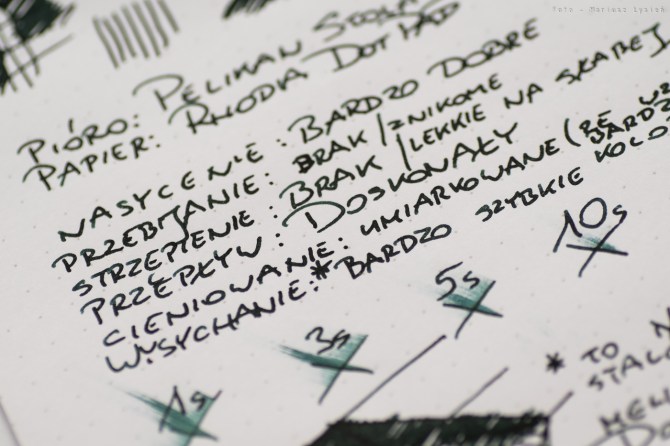 Foto - Mariusz Lysiak
PIÓRO: PELIKAN
PAPIER: RHODIA DOT PAD
NASYCENIE: BARDZO DOBRE
PRZEBIJANIE: BRAK / ZNIKOME
STRZĘPIENIE: BRAK / LEKKIE NA
PRZEPŁYW: DOSKONAŁY
CIENIOWANIE: UMIARKOWANE (ZE
WYSYCHANIE:* BARDZO SZYBKIE
10s
5s
3s
1s
* TO